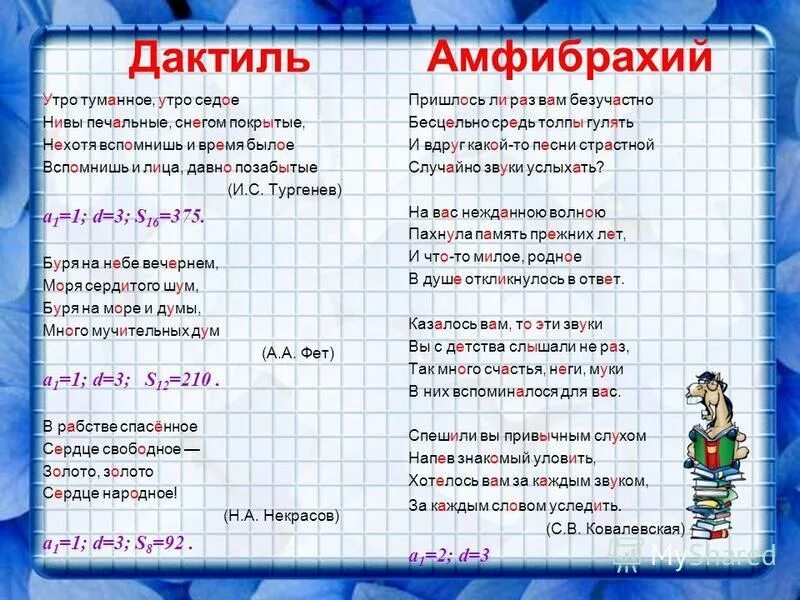 Дактиль
Утро туманное, утро седое
Нивы печальные, снегом покрытые,
Нехотя вспомнишь и время былое
Вспомнишь и лица, давно позабытые
(И.С. Тургенев)
a₁=1; d=3; S₁₆=375.
Буря на небе вечернем,
Моря сердитого шум,
Буря на море и думы,
Много мучительных дум
(А.А. Фет)
a₁=1; d=3; S₁₂=210 .
В рабстве спасённое
Сердце свободное —
Золото, золото
Сердце народное!
(Н.А. Некрасов)
a₁=1; d=3; S₈=92 .
Амфибрахий
Пришлось ли раз вам безучастно
Бесцельно средь толпы гулять
И вдруг какой-то песни страстной
Случайно звуки услыхать?
На вас нежданною волною
Пахнула память прежних лет,
И что-то милое, родное
В душе откликнулось в ответ.
Казалось вам, то эти звуки
Вы с детства слышали не раз,
Так много счастья, неги, муки
В них вспоминалося для вас.
Спешили вы привычным слухом
Напев знакомый уловить,
Хотелось вам за каждым звуком,
За каждым словом уследить.
(С.В. Ковалевская)
a₁=2; d=3
MyShared